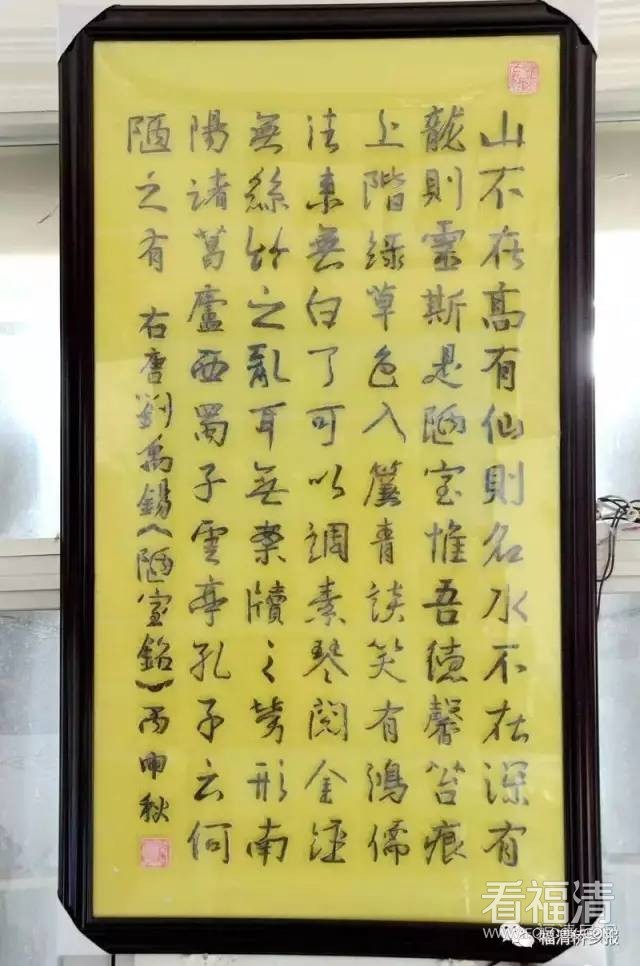 山不在高有仙則名水不在深有
龍則靈斯是陋室惟吾德馨苔痕
上階綠草色入簾青談笑有鴻儒
往來無白丁可以調素琴閱金經
無絲竹之亂耳無案牘之勞形南
陽諸葛廬西蜀子雲亭孔子云何
陋之有 右唐劉禹錫《陋室銘》丙申秋
看福清
福清侨乡报